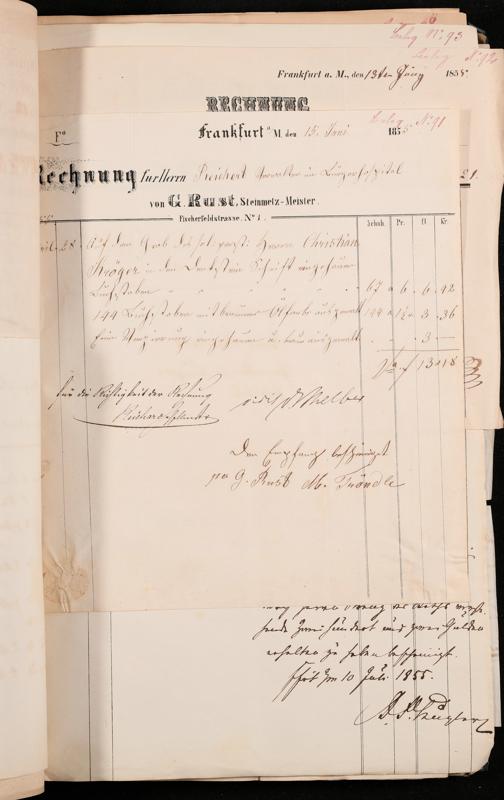 Beleg Nº 93
Beleg Nº 92
Frankfurt a. M., den 13ten Juny 1855
RECHNUNG
Beleg Nº 91
Fº
Frankfurt a/M. den 15. Juni 1855
Rechnung für Herrn Reichert Verwalter im Bürgerhospital
von G. Rust, Steinmetz-Meister.
Fischerfeldstrasse. Nº 1.
Schuh. Pr. fl. Kr.
28 Auf dem Grab des Herrn Christian
Kröger in den Denkstein Schrift eingehauen
67 Buchstaben 67 a 6 6. 42
144 Buchstaben mit brauner Ölfarbe ausgemalt 144 3. 36
Eine Verzierung eingehauen u. braun ausgemalt 3 —
13 18
für die Richtigkeit der Rechnung
vidi
Den Empfang bescheinigt
pr G. Rust M. Tröndle
zwei hundert und zwei Gulden
erhalten zu haben bescheinigt.
Ffurt am 10 Juli 1855.